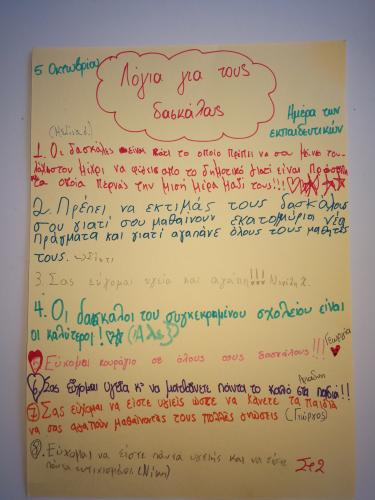 5 Οκτωβρίου
Λόγια για τους
δασκάλους
Ημέρα των
εκπαιδευτικών
1. Οι δασκάλες είναι κάτι το οποίο πρέπει να σου μείνει του-
λάχιστον μέχρι να φύγεις απο το δημοτικό γιατί είναι πρόσωπα
τα οποία περνάς την μισή μέρα μαζί τους!!!
2. Πρέπει να εκτιμάς τους δασκάλους
σου γιατί σου μαθαίνουν εκατομμύρια νέα
πράγματα και γιατί αγαπάνε όλους τους μαθητές
τους.
3. Σας εύχομαι υγεία και αγάπη!!!
4. Οι δασκαλοι του συγκεκριμένου σχολείου είναι
οι καλύτεροι! (Αλεξ)
Γεωργία
Εύχομαι κουράγιο σε όλους τους δασκάλους!!!
6 Σας εύχομαι υγεία κ' να ματαδίνετε πάντα το καλό στα παιδιά!!
7 Σας εύχομαι να είστε υγιείς ώστε να κάνετε τα παιδιά
να σας αγαπούν μαθαίνοντας τους πολλές γνώσεις (Γιώργος)
8. Εύχομαι να είστε πάντα υγιείς και να είστε
πάντα ευτυχισμένοι (Νίκη)
Στ2